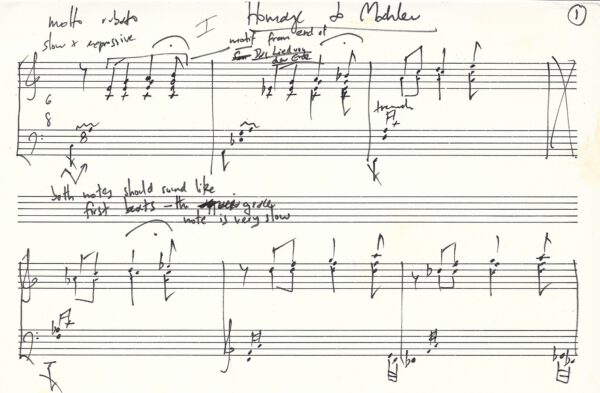 I Homage to Mahler
1
molto rubato
slow + expressive
motif from end of
Der Lied von
der Erde
6
8
tremolo
both notes should sound like
first beats - the grace
note is very slow